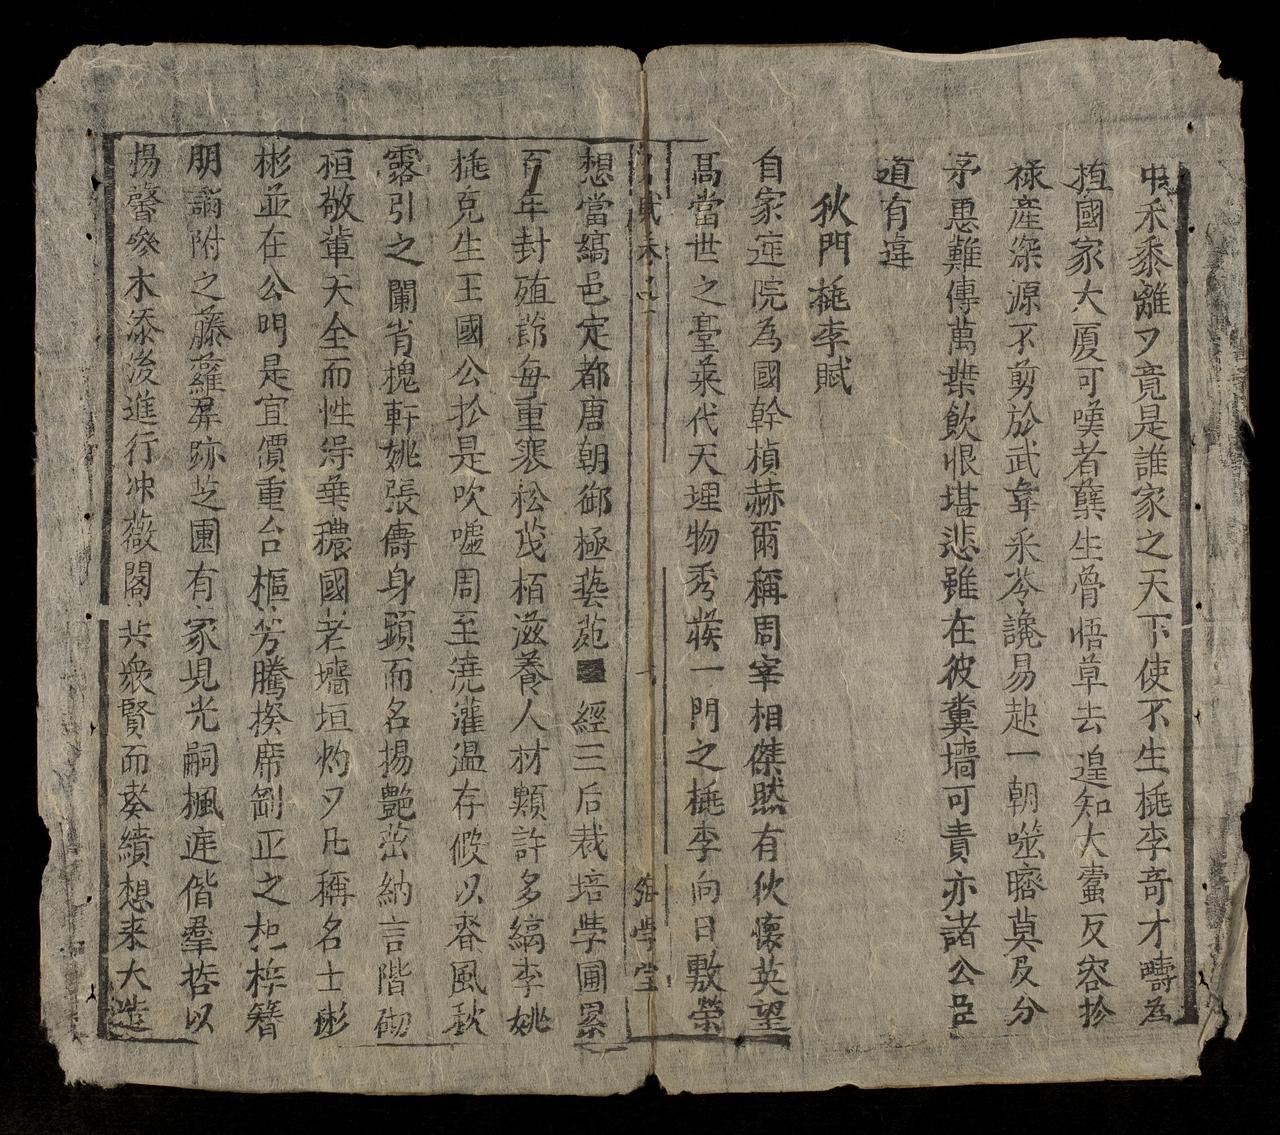 禾黍離〻竟是誰家之天下使不生桃李奇才疇為
植國家大厦可嘆者蘖生骨悟草去遑知大蠹反容於
禄産深源不剪於武韋采苓讒易赴一朝噬臍莫及分
茅悪難傳萬葉飲恨堪悲雖在彼糞墻可責亦諸公臣
道有違
狄門桃李賦
自家庭院為國幹楨赫爾稱周宰相傑然有狄懷英望
高當世之臺萊代天理物秀挨一門之桃李向日敷榮
名賦 海學堂
想當縞邑定都唐朝御極藝苑 經三后栽培學圃累
百年封殖節每重裘松茂栢滋養人材類許多縞李姚
桃克生王國公於是吹嘘周至澆灌温存假以春風秋
露引之闌省槐軒姚張儔身顕而名揚艷蕊納言階砌
桓敬軰天全而性得葉穠國老墻垣灼〻凡稱名士彬
彬並在公門是宜價重台樞芳騰揆席剛正之杞梓簪
朋謟附之藤蘿屏跡芝圃有家見光嗣楓庭偕羣哲以
揚馨參木添後進行冲薇閣共衆賢而奏績想来大造